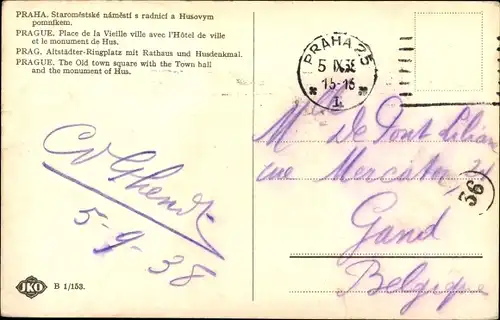 PRAHA. Staroměstské náměstí s radnicí a Husovým
pomníkem.
PRAGUE. Place de la Vieille ville avec l'Hôtel de ville
et le monument de Hus.
PRAG. Altstädter-Ringplatz mit Rathaus und Husdenkmal.
PRAGUE. The Old town square with the Town hall
and the monument of Hus.
PRAHA 25
5 IX 38
15-16
1
5-9-38
M De Pont Liliane
rue Mercator, 31
Gand
Belgique
36
JKO B 1/153.